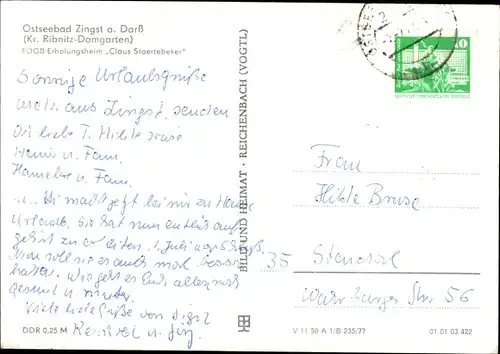 Ostseebad Zingst a. Darß
(Kr. Ribnitz-Damgarten)
FDGB-Erholungsheim „Claus Stoertebeker"
Sonnige Urlaubsgrüße
aus Zingst, senden
Dir liebe T. Hilde sowie
u. Fam.
Hannelore u. Fam.
macht jetzt bei mir zu Hause
Urlaub. Sie hat nun endlich auf
gehört zu arbeiten.
Nun soll sie es auch mal besser
haben. Wie geht es Euch allen,
gesund u. munter.
Viele liebe Grüße von
u. Jörg
DDR 0,25 M
BILD UND HEIMAT · REICHENBACH (VOGTL)
10
Frau
Hilde Bruse
35 Stendal
Str. 56
V 11 50 A 1/B 235/77
01 01 03 422